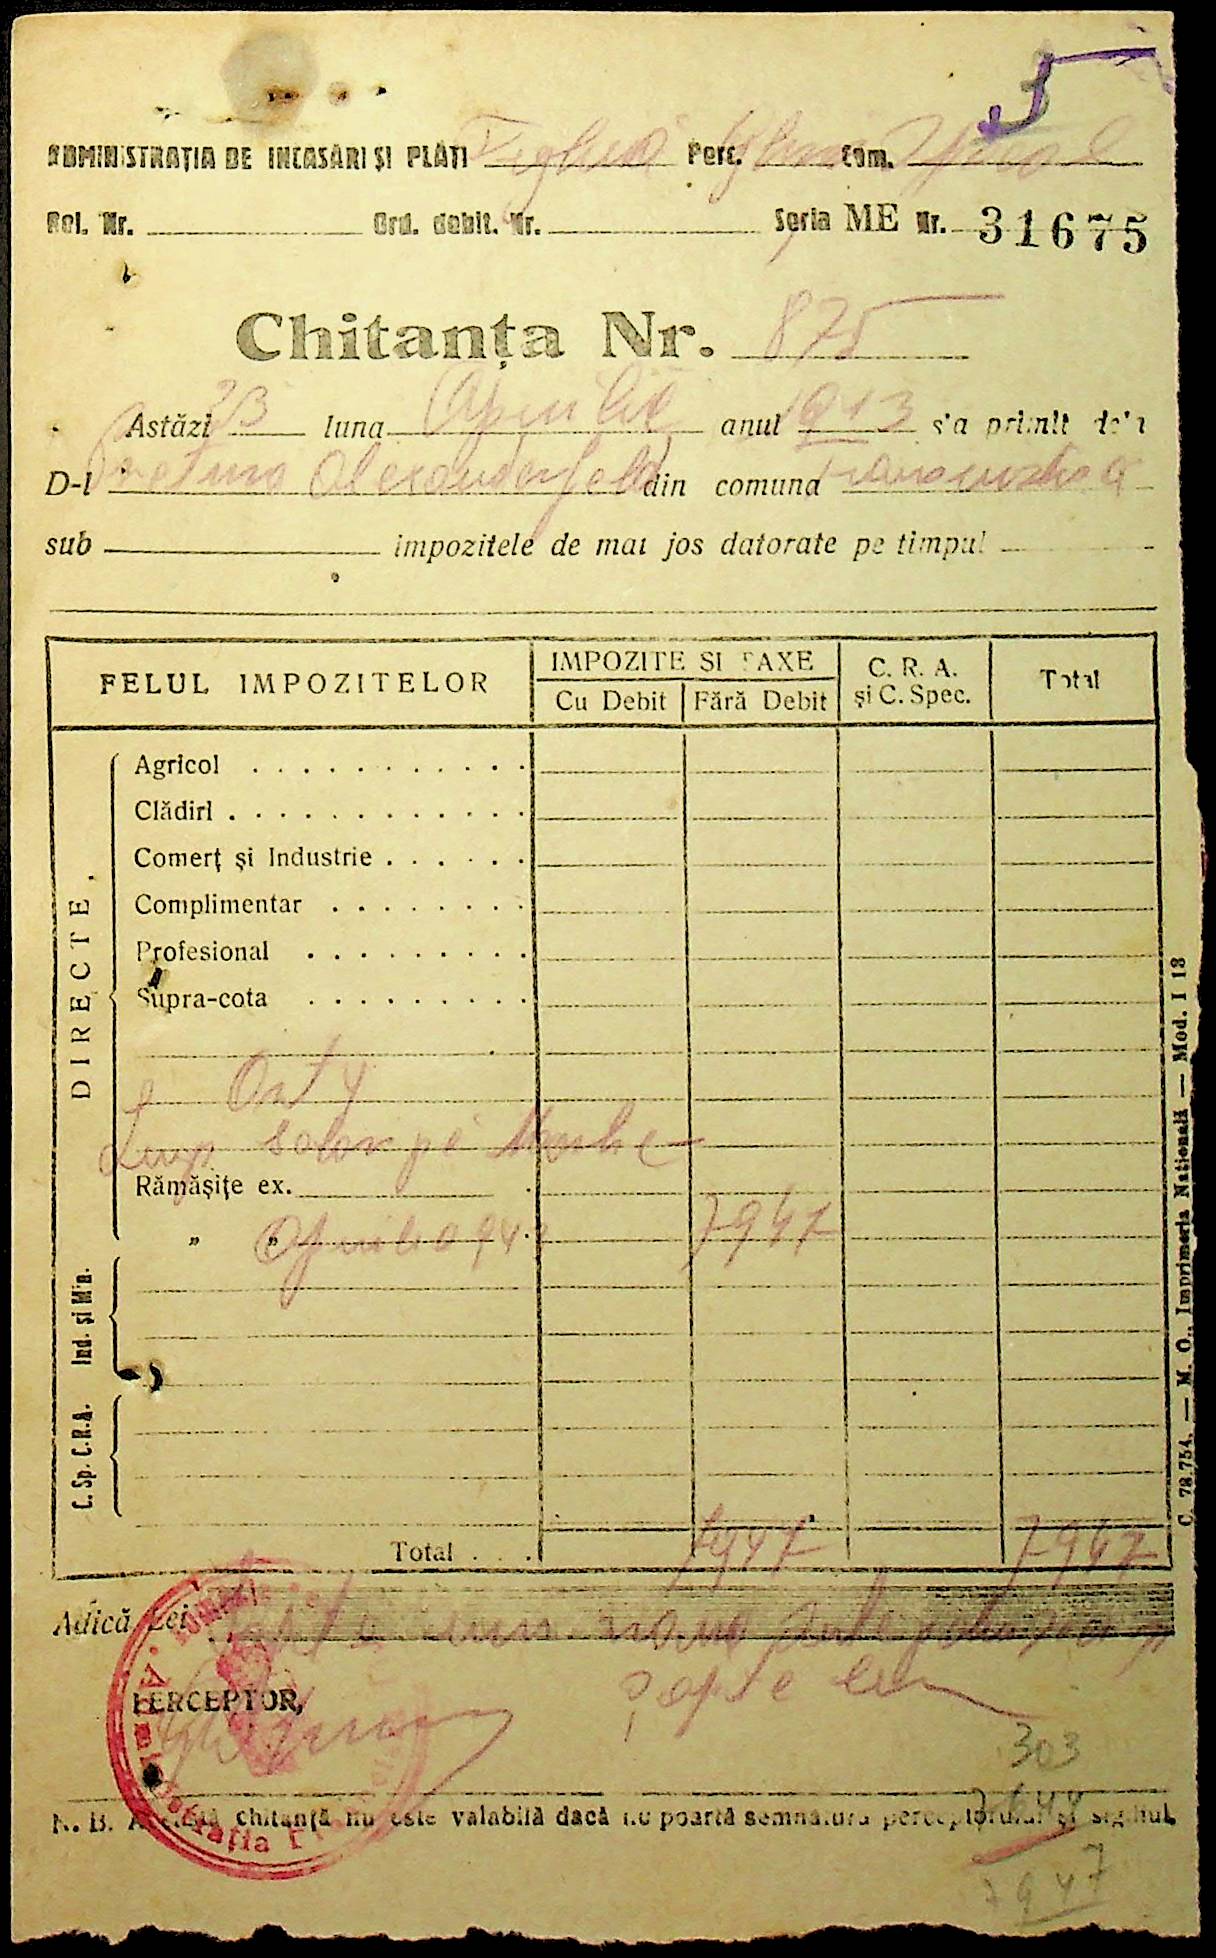 ADMINISTRAȚIA DE INCASĂRI ȘI PLĂȚI Tighina Perc. Com.
Rol. Nr. Ord. debit. Nr. Seria ME Nr. 31675
Chitanța Nr. 875
Astăzi 23 luna Aprilie anul 1943 s'a primit de'a
D-l Alexanderfeld din comuna
sub impozitele de mai jos datorate pe timpul
FELUL IMPOZITELOR IMPOZITE SI TAXE C. R. A. și C. Spec. Total
Cu Debit Fără Debit
DIRECTE.
Agricol
Clădiri
Comerț și Industrie
Complimentar
Profesional
Supra-cota
Imp. pe
Rămășițe ex.
" " Aprilie 943 7947
Ind. și Min.
C. Sp. C.R.A.
Total 7947 7947
Adică Lei
șapte lei
PERCEPTOR,
303
7644
N. B. Această chitanță nu este valabilă dacă nu poartă semnătura perceptorului și sigiliul.
7947
C. 78.754. — M. O., Imprimeria Națională — Mod. I 13